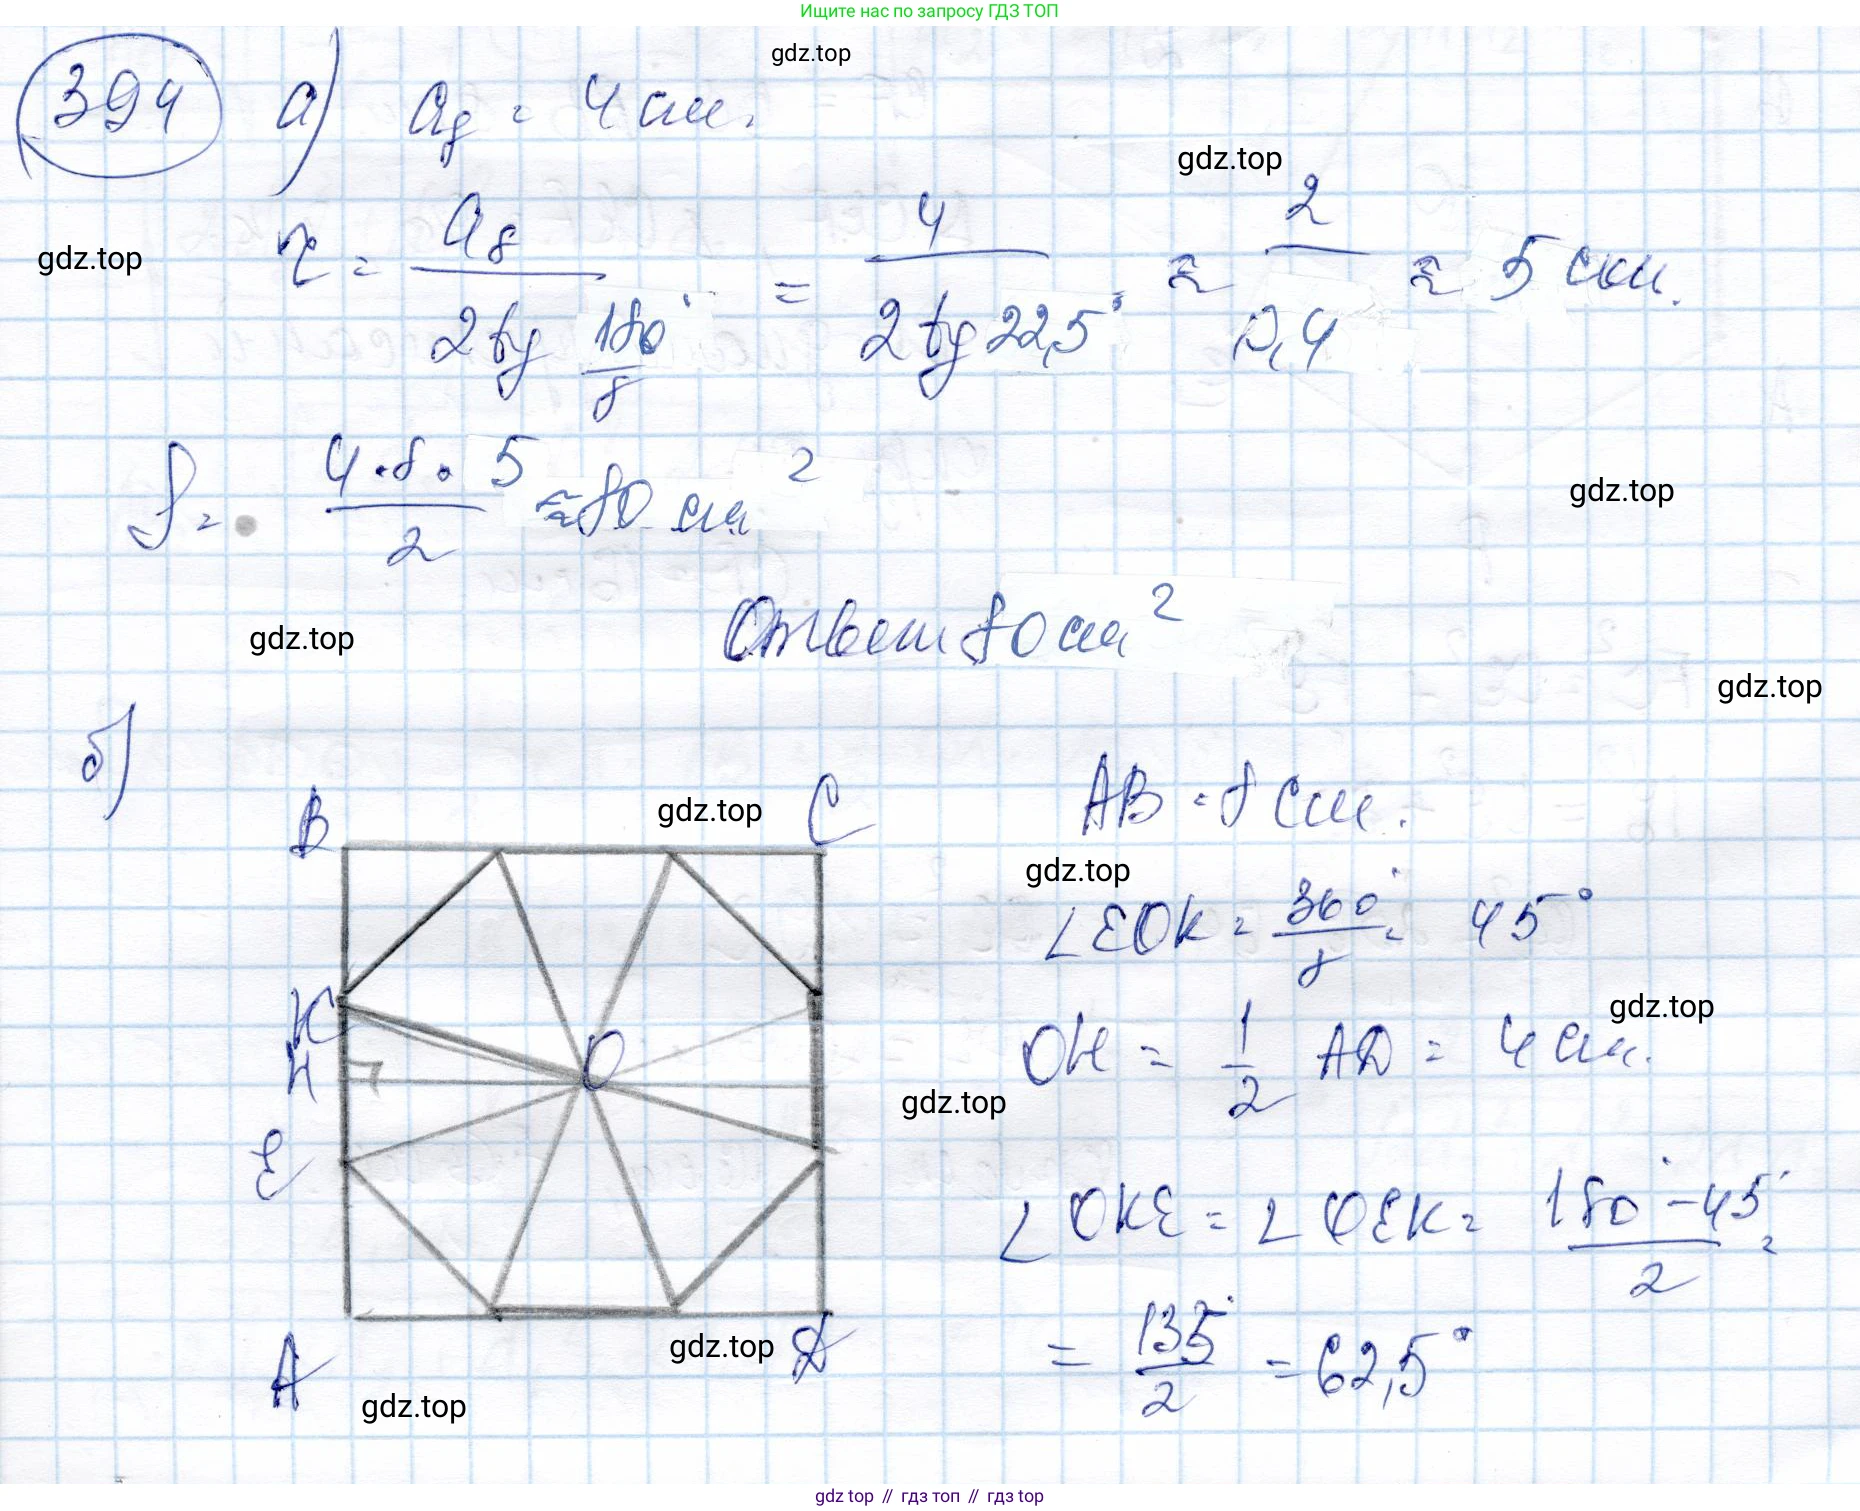 Ищите нас по запросу ГДЗ ТОП
gdz.top
394 а) a₈ = 4 см.
gdz.top
gdz.top
r = a₈ / (2 tg 180°/8) = 4 / (2 tg 22,5°) ≈ 2 / 0,4 ≈ 5 см.
S = (4 · 8 · 5) / 2 ≈ 80 см²
gdz.top
Ответ 80 см²
gdz.top
gdz.top
б)
B
gdz.top
C
AB = 8 см.
gdz.top
∠EOK = 360°/8 = 45°
K
gdz.top
H
O
OH = 1/2 AD = 4 см.
gdz.top
E
∠OKE = ∠OEK = (180° - 45°) / 2 =
= 135°/2 = 62,5°
gdz.top
A
D
gdz.top
gdz top // гдз топ // гдз top